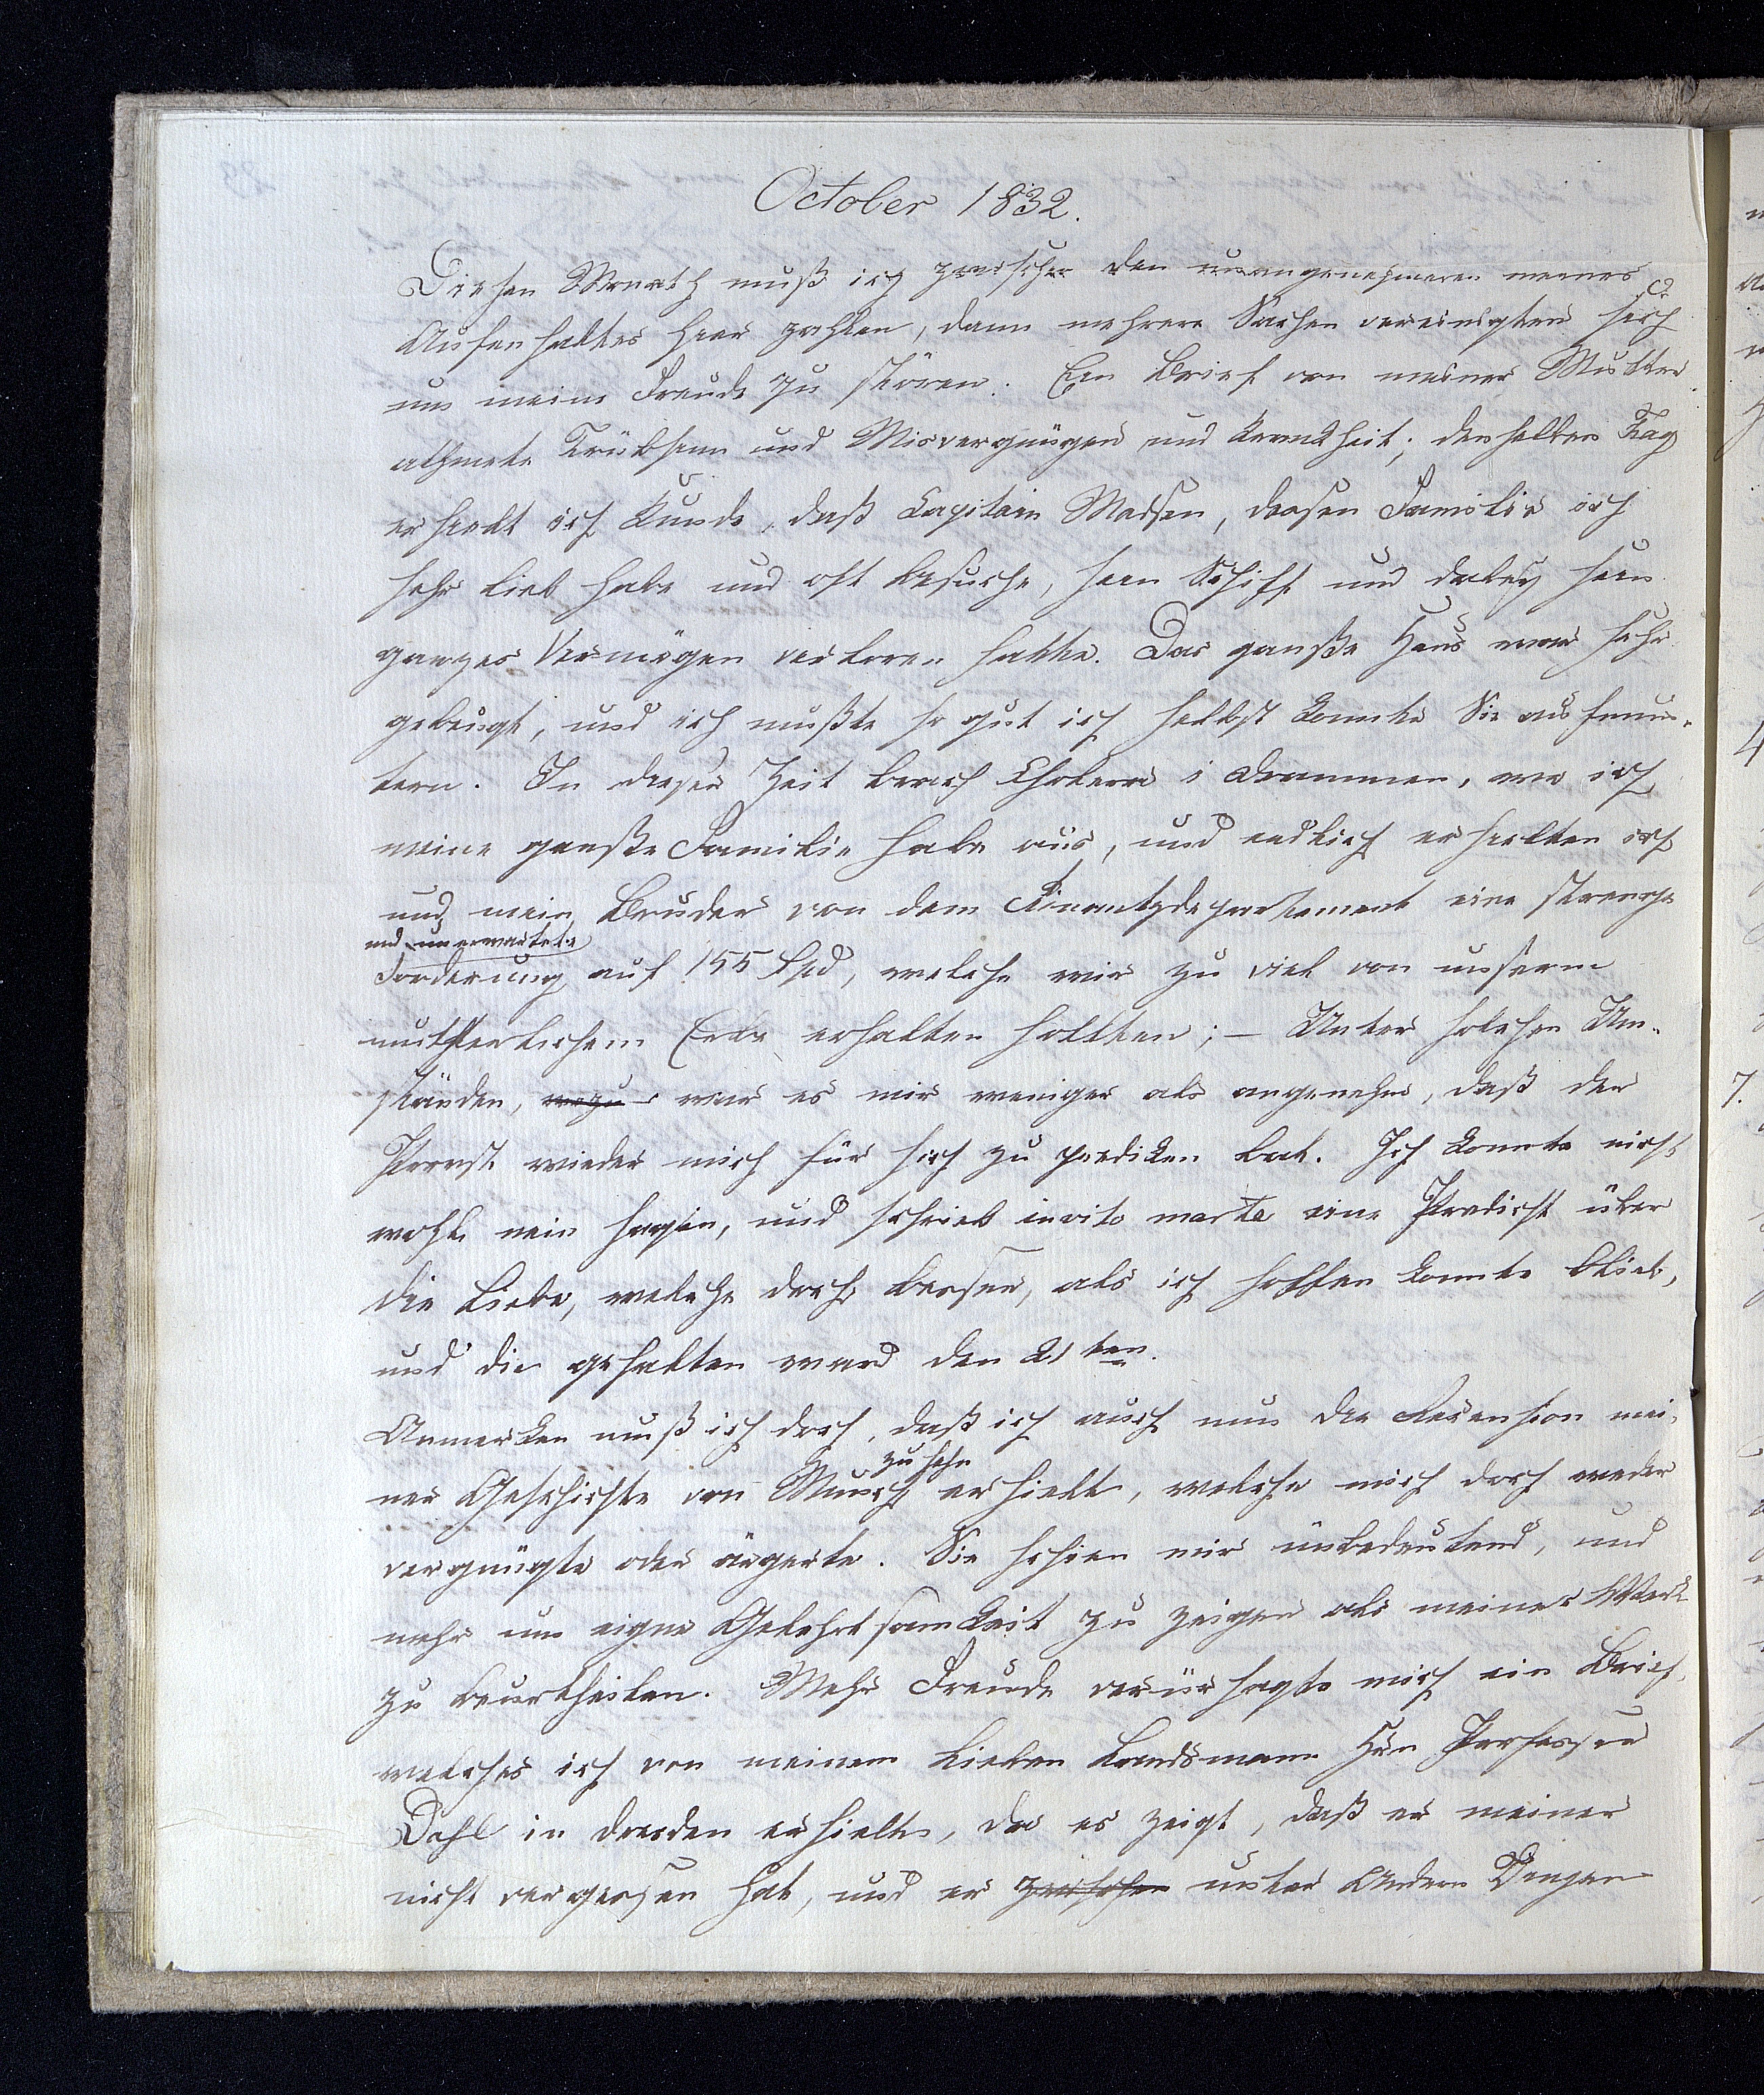 October 1832.
Diesen Monath muß ich zwischen den unangenehmeren meines
Aufenhaltes hier zahlen, dann mehrere Sachen vereinigten sich
um meine Freude zu stören. Ein Brief von meiner Mutter
athmete Trübsinn und Misvergnügen und Krankheit; denselben Tag
erhielt ich Kunde, daß Capitain Madsen, dessen Familie ich
sehr lieb habe und oft besuche, sein Schiff und dabey sein
ganzes Vermögen verloren hatte. Das ganße Haus war sehr
gebeugt, und ich mußte so gut ich selbst konnte Sie aufmun-
tern. In dieser Zeit brach Cholera i Drammen, wo ich
meine ganße Familie habe aus, und endlich erhielten ich
und mein Bruder von dem Finantzdepartement eine strenge
und unerwartete
Forderung auf 155 Spd, welche wir zu viel von unserm
mütterlichem Erbe erhalten hollten; – Unter solchen Um-
ständen, war es mir weniger als angenehm, daß der
Provst wieder mich für sich zu prediken bat. Ich konnte nicht
wohl nein sagen, und schrieb invito marte eine Predicht über
die Liebe, welche doch besser, als ich hoffen konnte blieb,
und die gehalten ward den 21ten.
Anmerken muß ich doch, daß ich auch nun die Recension mei-
zu sehn
ner Geschichte von Munch erhielt, welche mich doch weder
vergnügte oder ärgerte. Sie schien mir unbedeutend, und
mehr um eigne Gelehrtsamkeit zu zeigen als meines Werk
zu beurtheilen. Mehr Freude verursagte mich ein Brief,
welches ich von meinem lieben Landsmann Hrn Professor
Dahl in Dresden erhielt, da es zeigt, daß er meiner
nicht vergessen hat, und er zwischen unter Andern Dingen